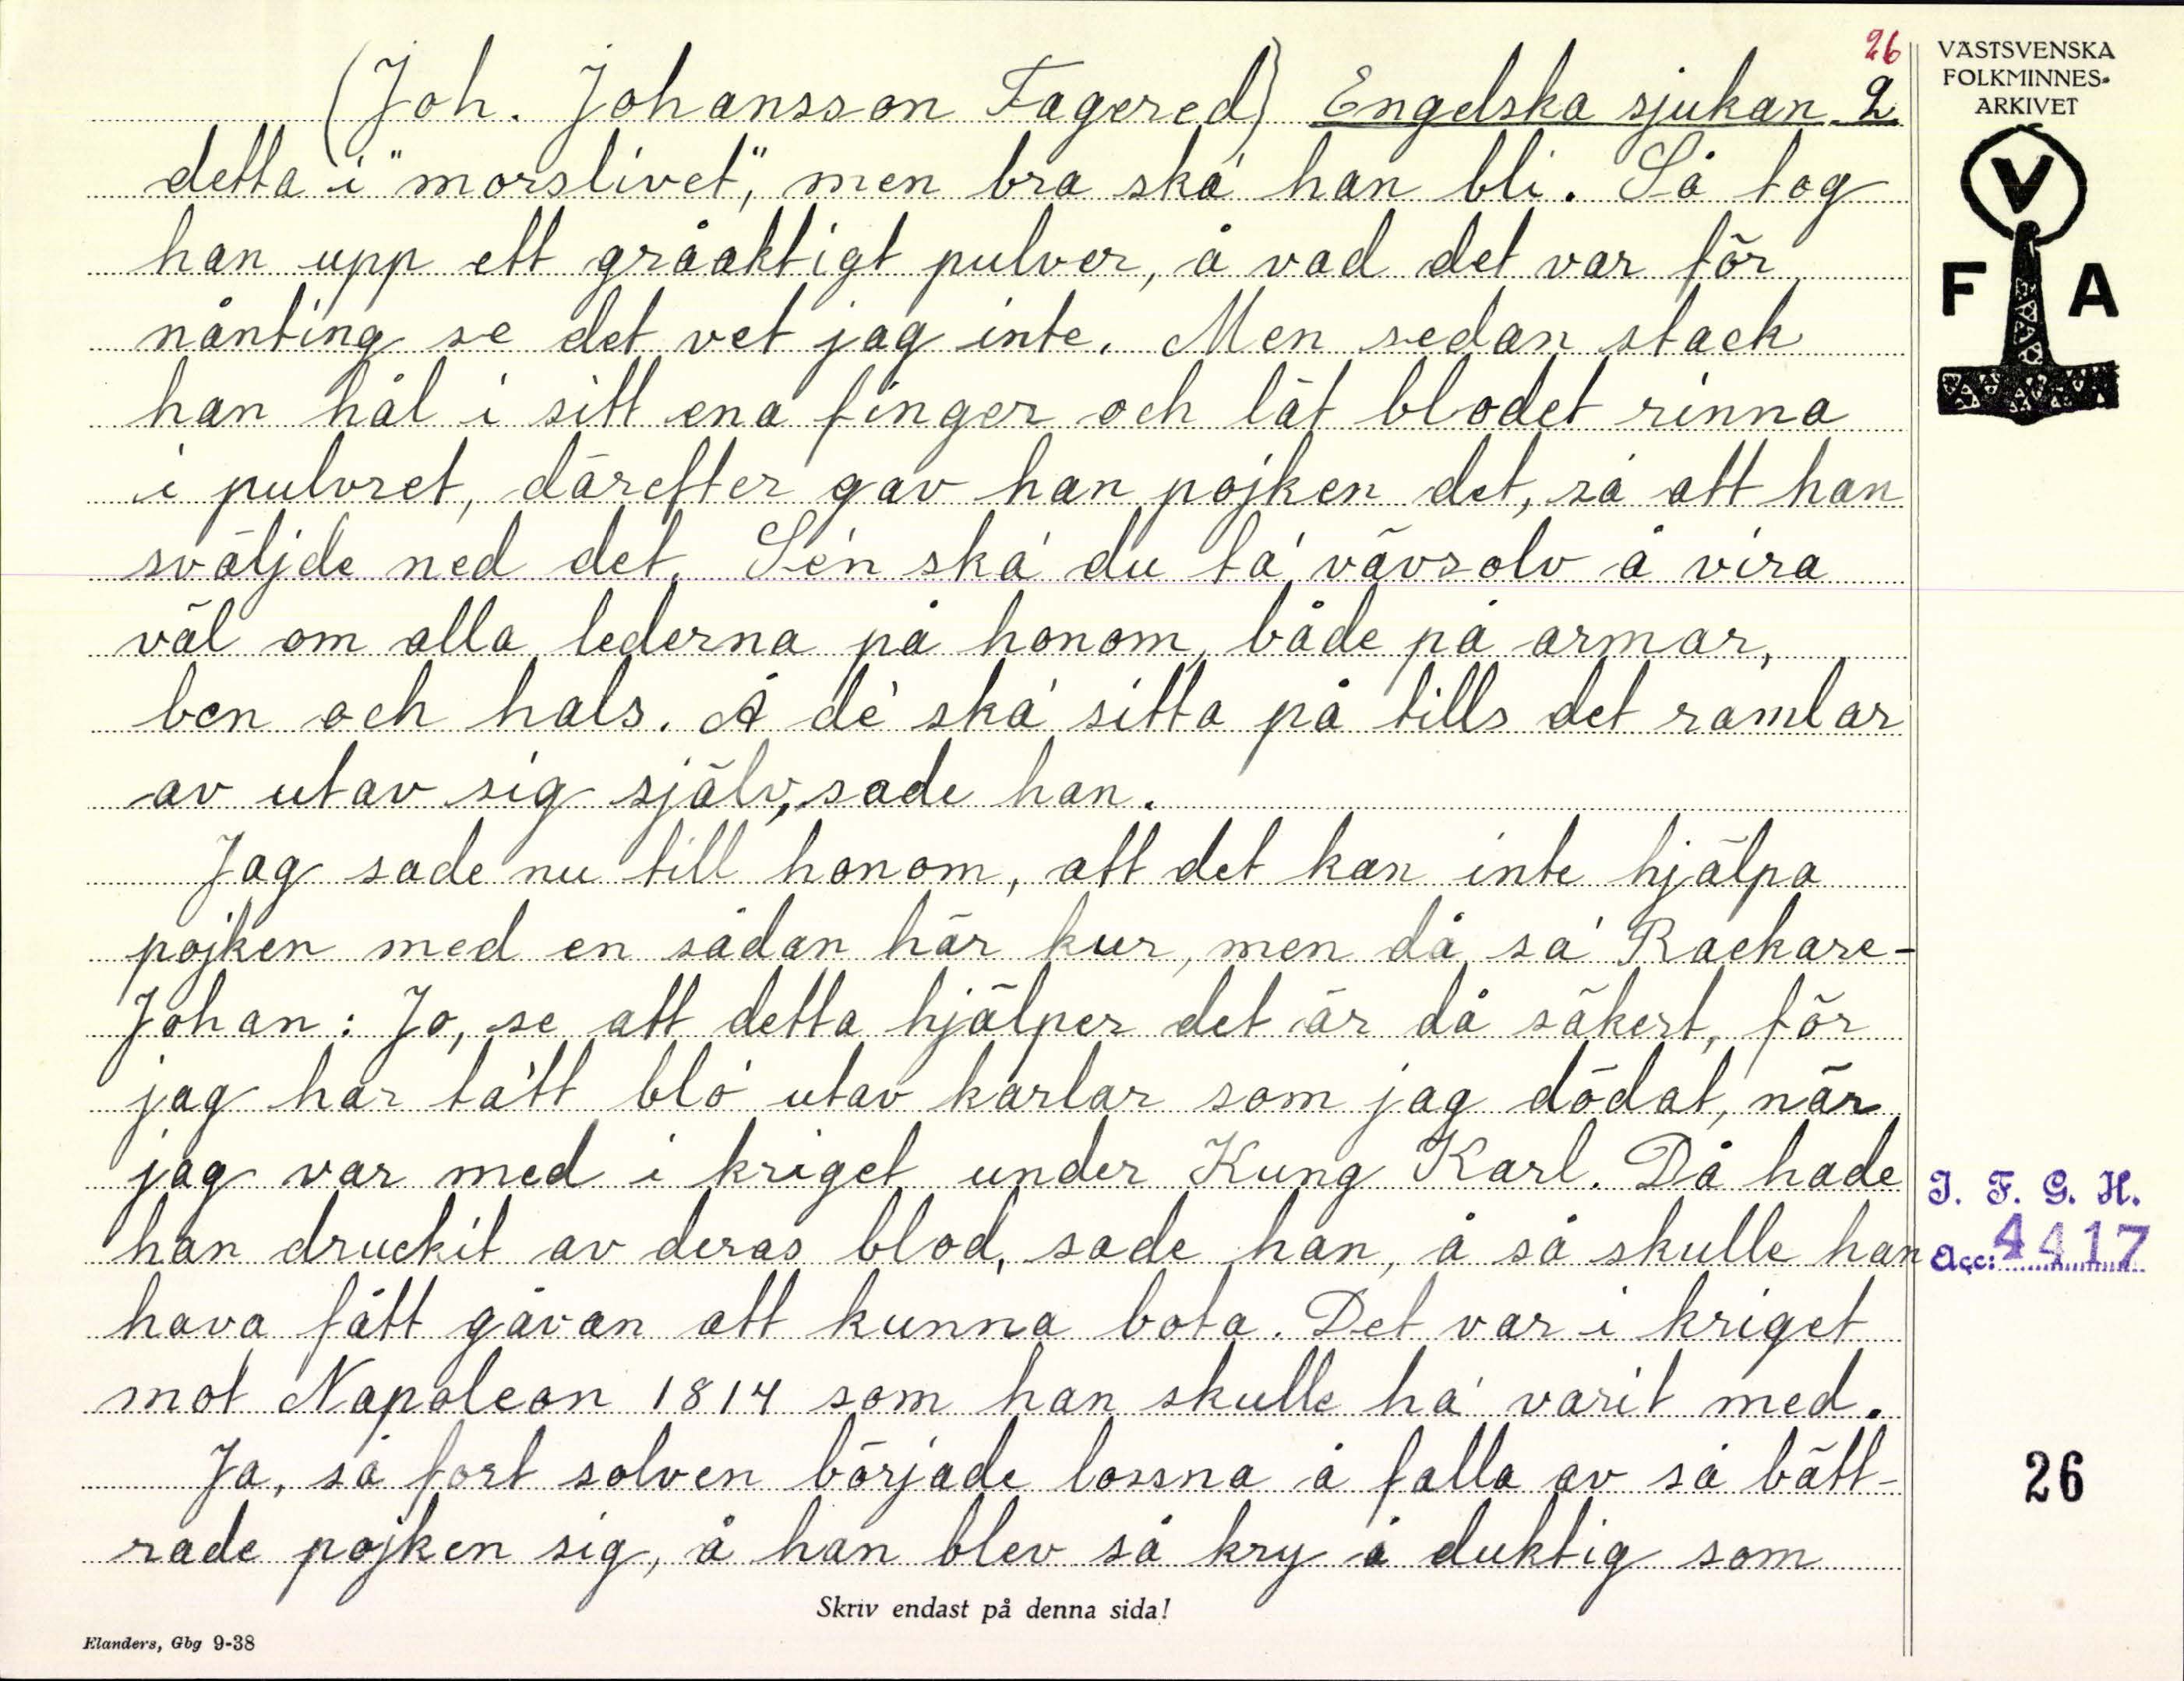 26
(Joh. Johansson Fagered) Engelska sjukan. 2.
detta i "morslivet", men bra ska' han bli. Så tog
han upp ett gråaktigt pulver, å vad det var för
nånting se det vet jag inte. Men sedan stack
han hål i sitt ena finger och lät blodet rinna
i pulvret, därefter gav han pojken det, så att han
sväljde ned det. Se'n ska' du ta' vävsolv å vira
väl om alla lederna på honom, både på armar,
ben och hals. Å de' ska' sitta på tills det ramlar
av utav sig själv, sade han.
Jag sade nu till honom, att det kan inte hjälpa
pojken med en sådan här kur, men då sa' Rackare-
Johan: Jo, se att detta hjälper det är då säkert, för
jag har ta'tt blo' utav karlar som jag dödat, när
jag var med i kriget under Kung Karl. Då hade
han druckit av deras blod, sade han, å så skulle han
hava fått gåvan att kunna bota. Det var i kriget
mot Napoleon 1814 som han skulle ha' varit med.
Ja, så fort solven började lossna å falla av så bätt-
rade pojken sig, å han blev så kry å duktig som
Skriv endast på denna sida!
Elanders, Gbg 9-38
VÄSTSVENSKA
FOLKMINNES-
ARKIVET
V
F A
I. F. G. H.
Acc: 4417
26